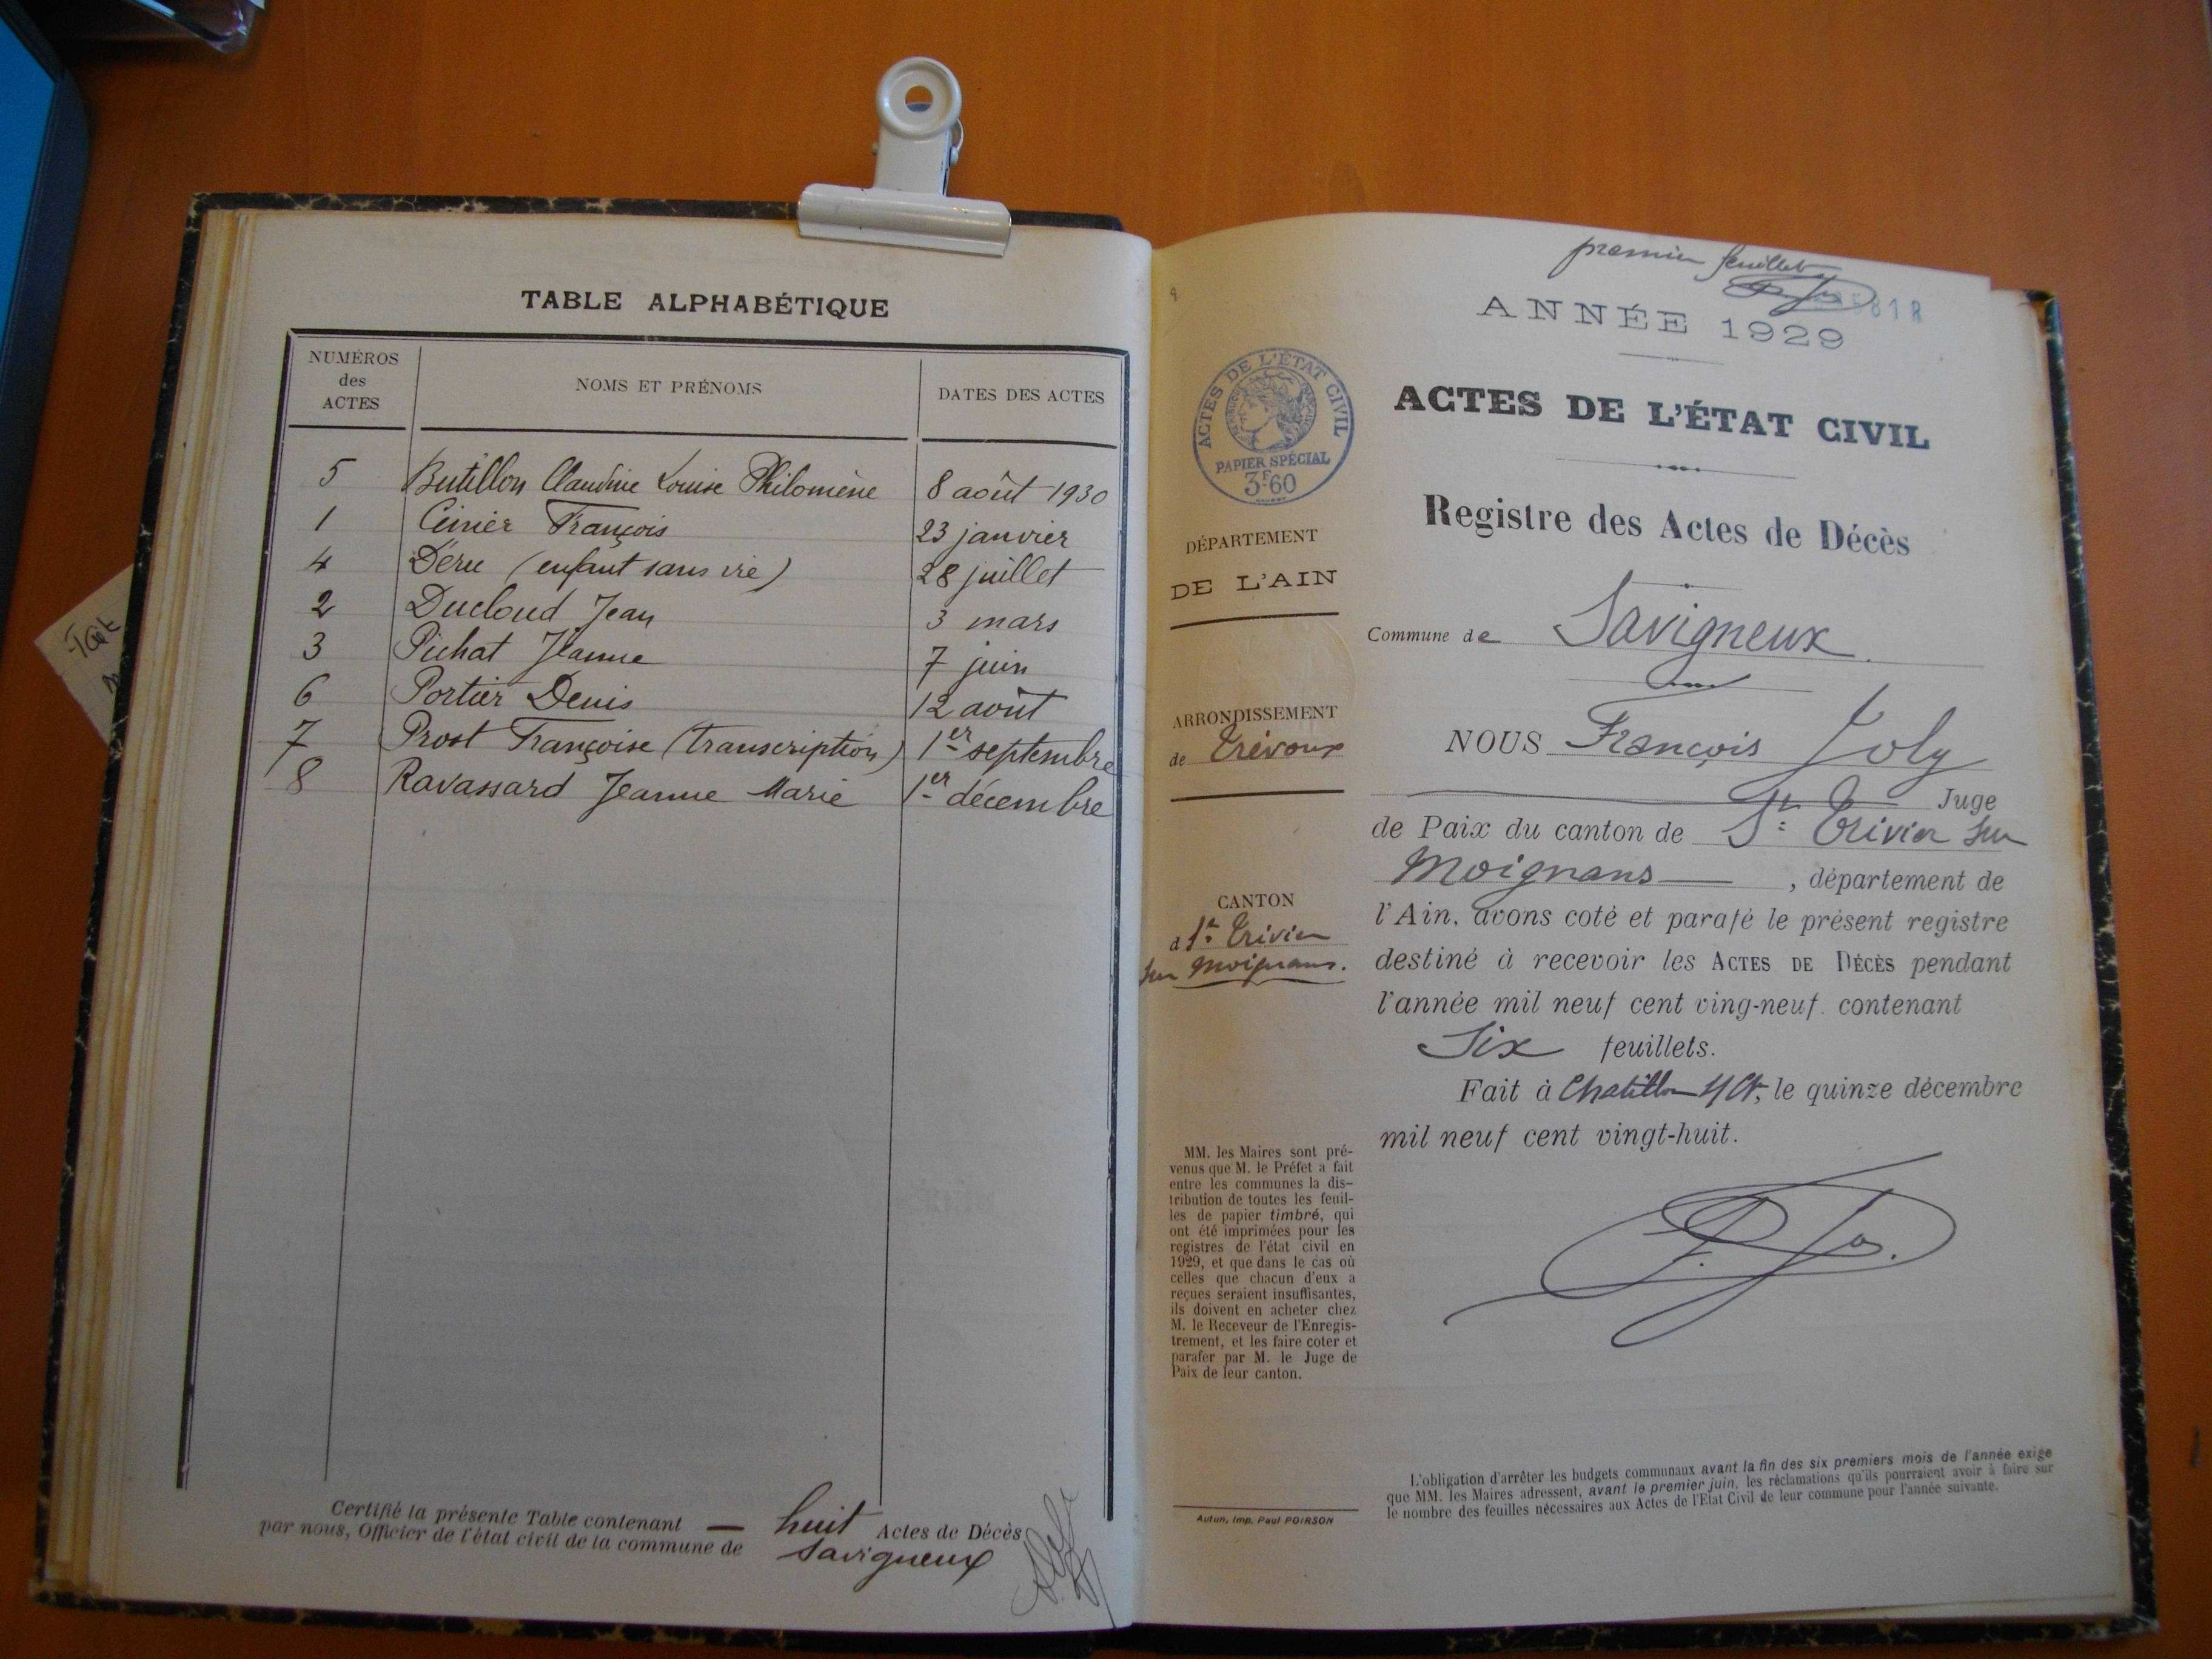 TABLE ALPHABÉTIQUE
NUMÉROS des ACTES NOMS ET PRÉNOMS DATES DES ACTES
5 Butillon Claudine Louise Philomène 8 août 1930
1 Cinier François 23 janvier
4 Déru (enfant sans vie) 28 juillet
2 Ducloud Jean 3 mars
3 Pichat Jeanne 7 juin
6 Portier Denis 12 août
7 Prost Françoise (transcription) 1er septembre
8 Ravassard Jeanne Marie 1er décembre
Certifié la présente Table contenant — huit Actes de Décès
par nous, Officier de l'état civil de la commune de Savigneux
premier feuillet
ANNÉE 1929
ACTES DE L'ÉTAT CIVIL
Registre des Actes de Décès
Commune de Savigneux
NOUS François Joly
Juge
de Paix du canton de St Trivier sur
Moignans, département de
l'Ain, avons coté et parafé le présent registre
destiné à recevoir les ACTES DE DÉCÈS pendant
l'année mil neuf cent ving-neuf. contenant
Six feuillets.
Fait à Chatillon s/Ch, le quinze décembre
mil neuf cent vingt-huit.
ACTES DE L'ÉTAT CIVIL
PAPIER SPÉCIAL
3F60
DÉPARTEMENT
DE L'AIN
ARRONDISSEMENT
de Trévoux
CANTON
d St Trivier
sur Moignans.
MM. les Maires sont pré-
venus que M. le Préfet a fait
entre les communes la dis-
tribution de toutes les feuil-
les de papier timbré, qui
ont été imprimées pour les
registres de l'état civil en
1929, et que dans le cas où
celles que chacun d'eux a
reçues seraient insuffisantes,
ils doivent en acheter chez
M. le Receveur de l'Enregis-
trement, et les faire coter et
parafer par M. le Juge de
Paix de leur canton.
Autun, Imp. Paul POIRSON
L'obligation d'arrêter les budgets communaux avant la fin des six premiers mois de l'année exige
que MM. les Maires adressent, avant le premier juin, les réclamations qu'ils pourraient avoir à faire sur
le nombre des feuilles nécessaires aux Actes de l'Etat Civil de leur commune pour l'année suivante.